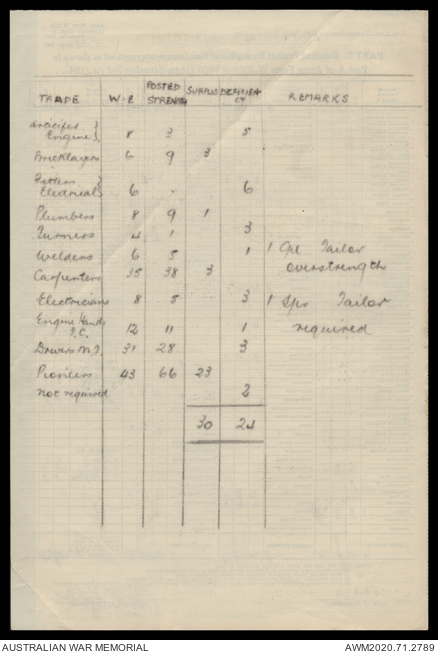 TRADE W.E POSTED STRENGTH SURPLUS DEFICIENCY REMARKS
Engine 8 3 5
Bricklayers 6 9 3
Fitters
Electrical 6 . 6
Plumbers 8 9 1
Turners 4 1 3
Welders 6 5 1 1 Cpl Tailor
Carpenters 35 38 3 overstrength
Electricians 8 5 3 1 Spr Tailor
Engine Hands
I.C. 12 11 1 required
Drivers M.T. 31 28 3
Pioneers 43 66 23
not required 2
30 24
AUSTRALIAN WAR MEMORIAL AWM2020.71.2789